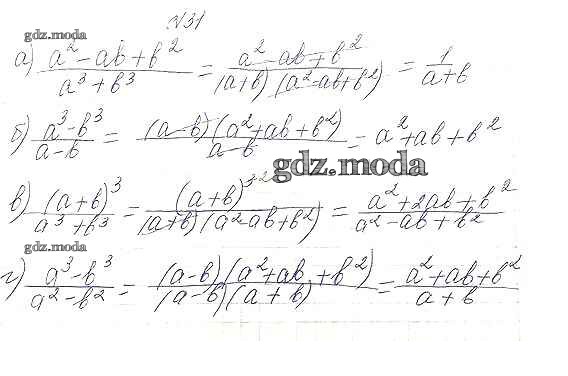 №31
gdz.moda
а) (a² - ab + b²)/(a³ + b³) = (a² - ab + b²)/((a+b)(a² - ab + b²)) = 1/(a+b)
б) (a³ - b³)/(a - b) = ((a - b)(a² + ab + b²))/(a - b) = a² + ab + b²
gdz.moda
в) (a+b)³/(a³ + b³) = (a+b)³ ²/((a+b)(a² - ab + b²)) = (a² + 2ab + b²)/(a² - ab + b²)
gdz.moda
г) (a³ - b³)/(a² - b²) = ((a - b)(a² + ab + b²))/((a - b)(a + b)) = (a² + ab + b²)/(a + b)